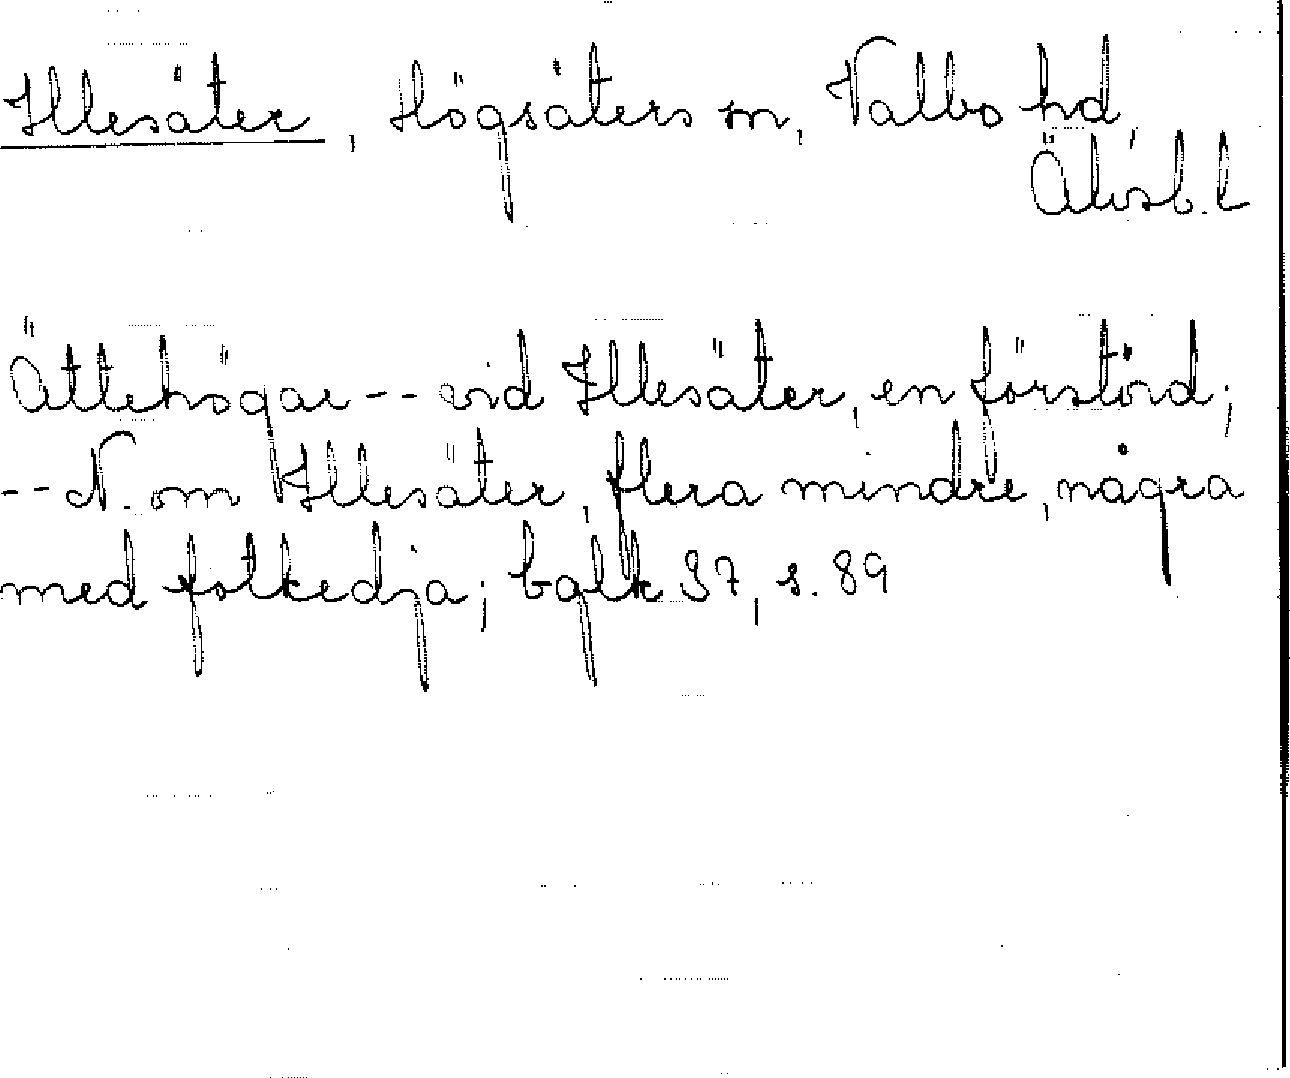 Illesäter, Högsäters sn, Valbo hd,
Älvsb. l
Ättehögar -- vid Illesäter, en förstörd;
-- N. om Illesäter, flera mindre, några
med fotkedja; balk 37, s. 89